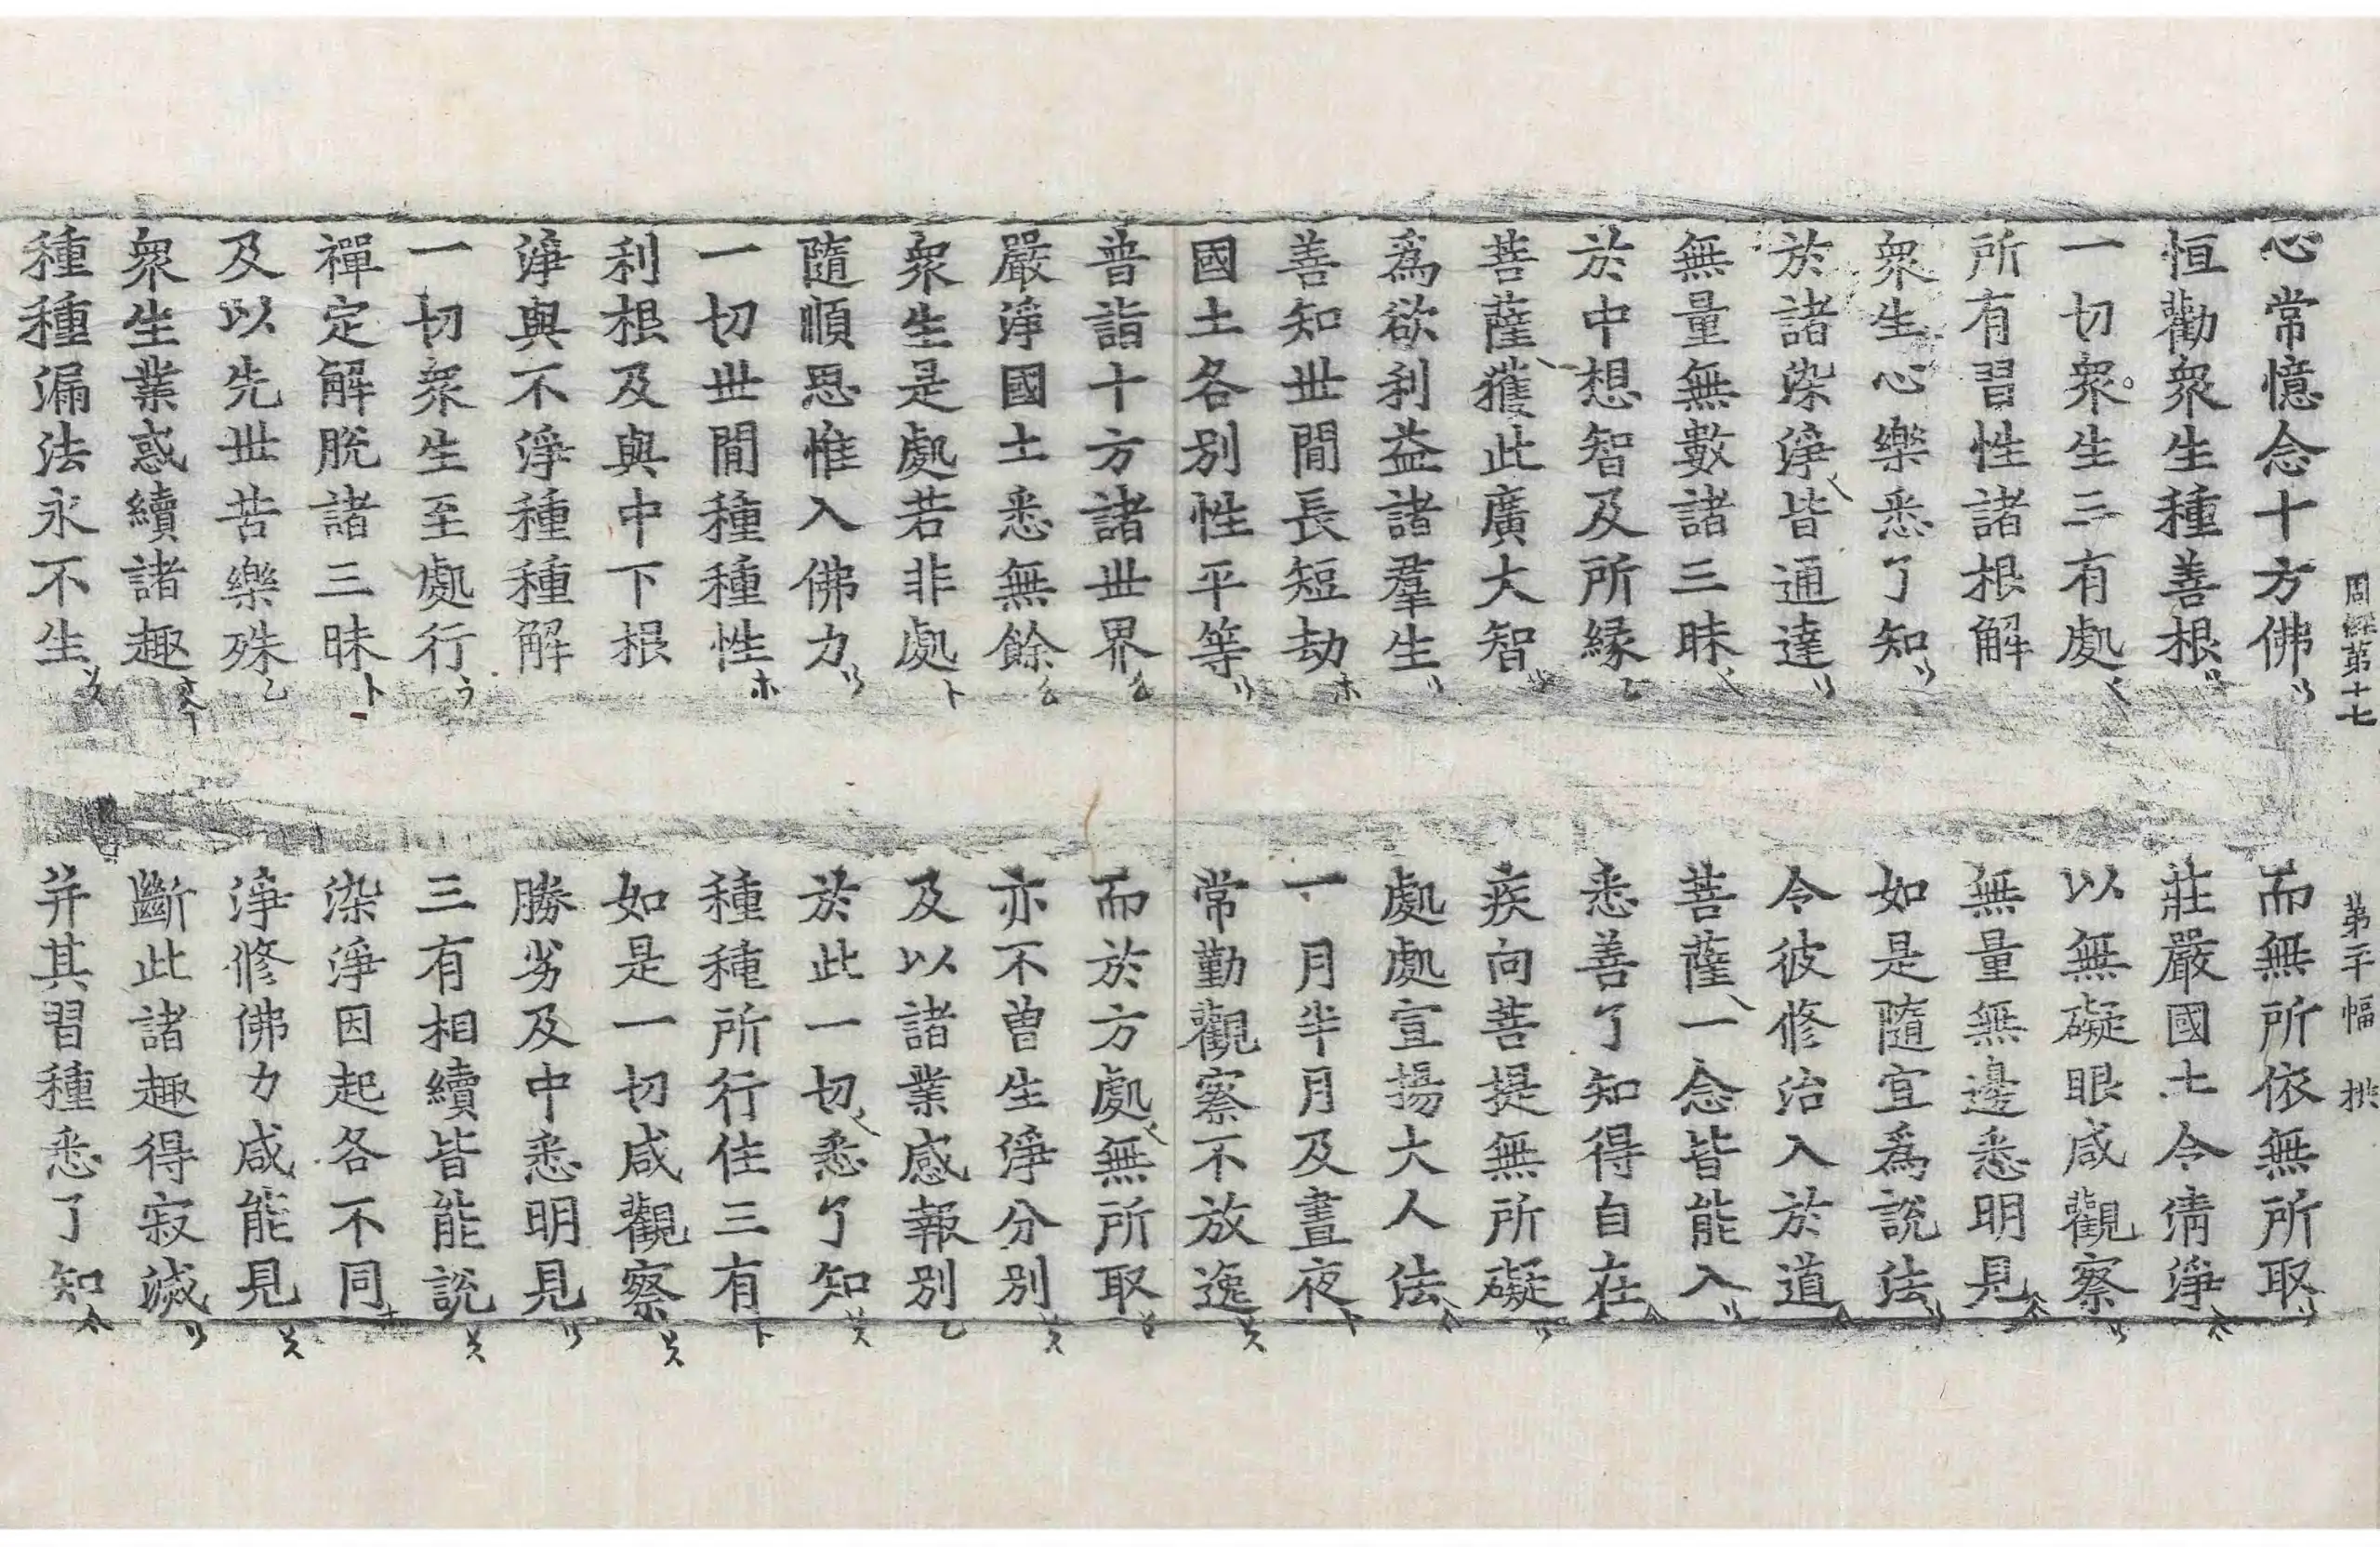 周經第十七　第二十幅
心常憶念十方佛　而無所依無所取
恒勸衆生種善根　莊嚴國土令淸淨
一切衆生三有處　以無礙眼咸觀察
所有習性諸根解　無量無邊悉明見
衆生心樂悉了知　如是隨宜爲說法
於諸染淨皆通達　令彼修治入於道
無量無數諸三昧　菩薩一念皆能入
於中想智及所緣　悉善了知得自在
菩薩獲此廣大智　疾向菩提無所礙
爲欲利益諸羣生　處處宣揚大人法
善知世間長短劫　一月半月及晝夜
國土各別性平等　常勤觀察不放逸
普詣十方諸世界　而於方處無所取
嚴淨國土悉無餘　亦不曾生淨分別
衆生是處若非處　及以諸業感報別
隨順思惟入佛力　於此一切悉了知
一切世間種種性　種種所行住三有
利根及與中下根　如是一切咸觀察
淨與不淨種種解　勝劣及中悉明見
一切衆生至處行　三有相續皆能說
禪定解脫諸三昧　染淨因起各不同
及以先世苦樂殊　淨修佛力咸能見
衆生業惑續諸趣　斷此諸趣得寂滅
種種漏法永不生　并其習種悉了知